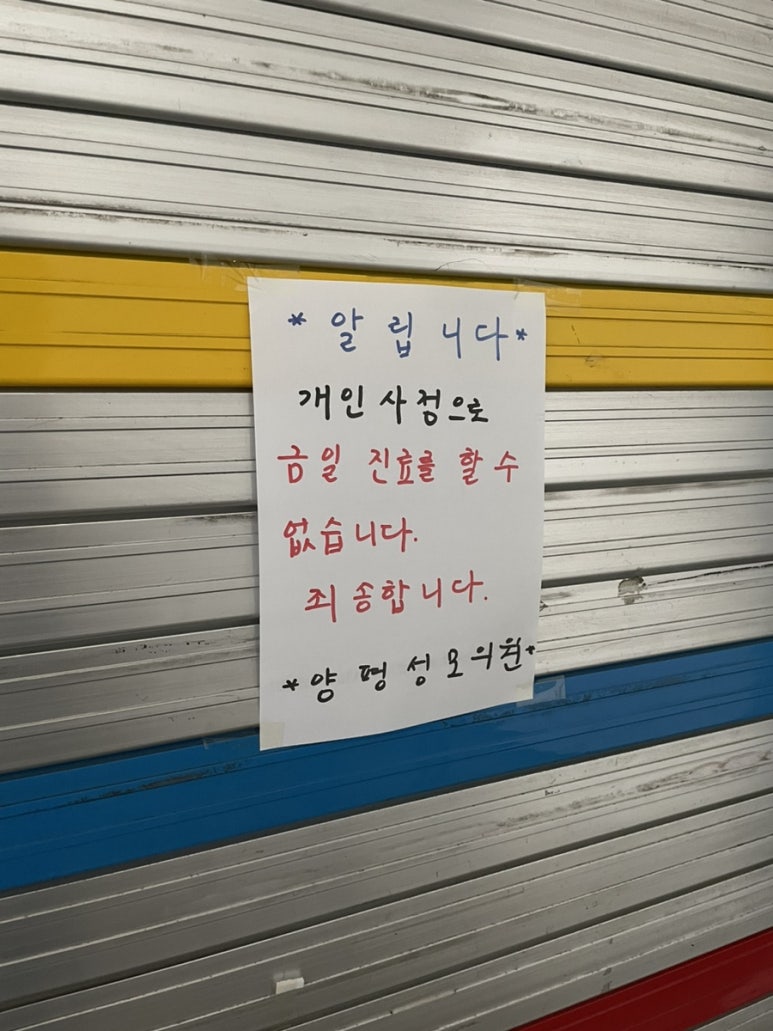 *알립니다*
개인사정으로
금일 진료를 할 수
없습니다.
죄송합니다.
*양평성모의원*